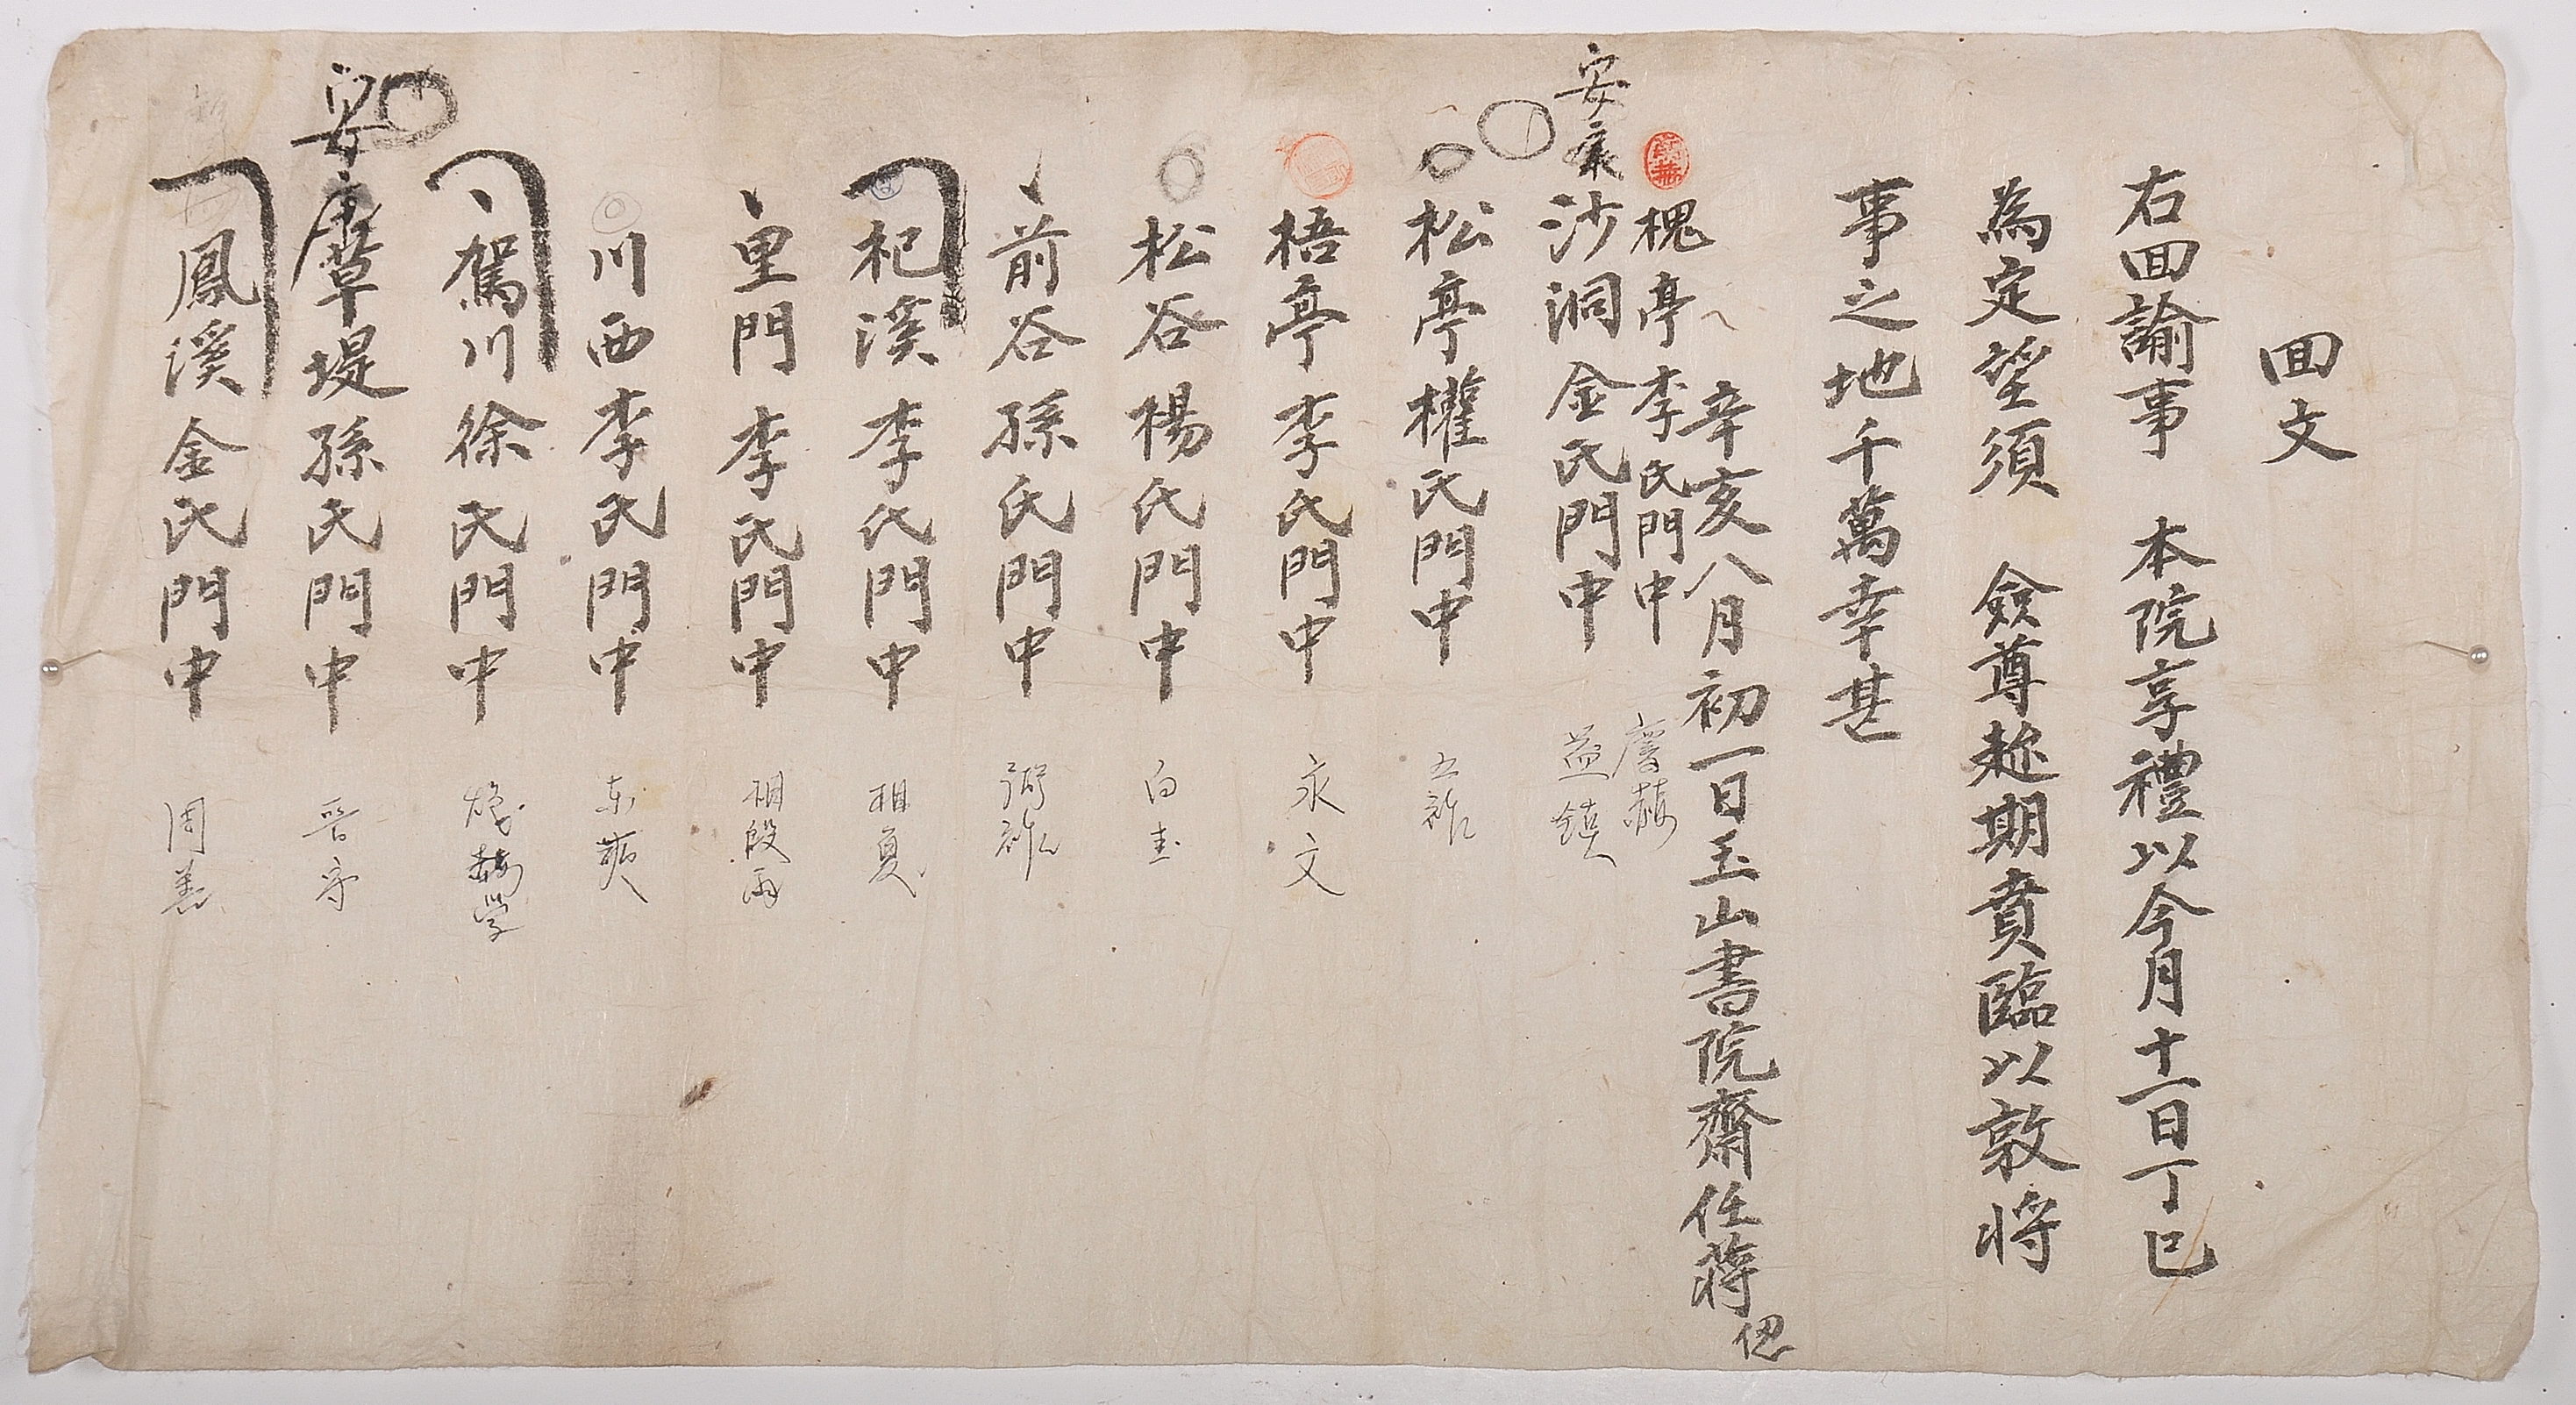 回文
右回諭事 本院享禮以今月十一日丁巳
為定望須 僉尊趁期賁臨以敦將
事之地千萬幸甚
辛亥八月初一日玉山書院齋任蔣 偲
槐亭李氏門中
安康沙洞金氏門中 益鎮
松亭權氏門中 五雒
梧亭李氏門中 永文
松谷楊氏門中 白圭
前谷孫氏門中
杞溪李氏門中 相夏
里門李氏門中 相殷
川西李氏門中
駕川徐氏門中
安康草堤孫氏門中 晉守
鳳溪金氏門中 周善